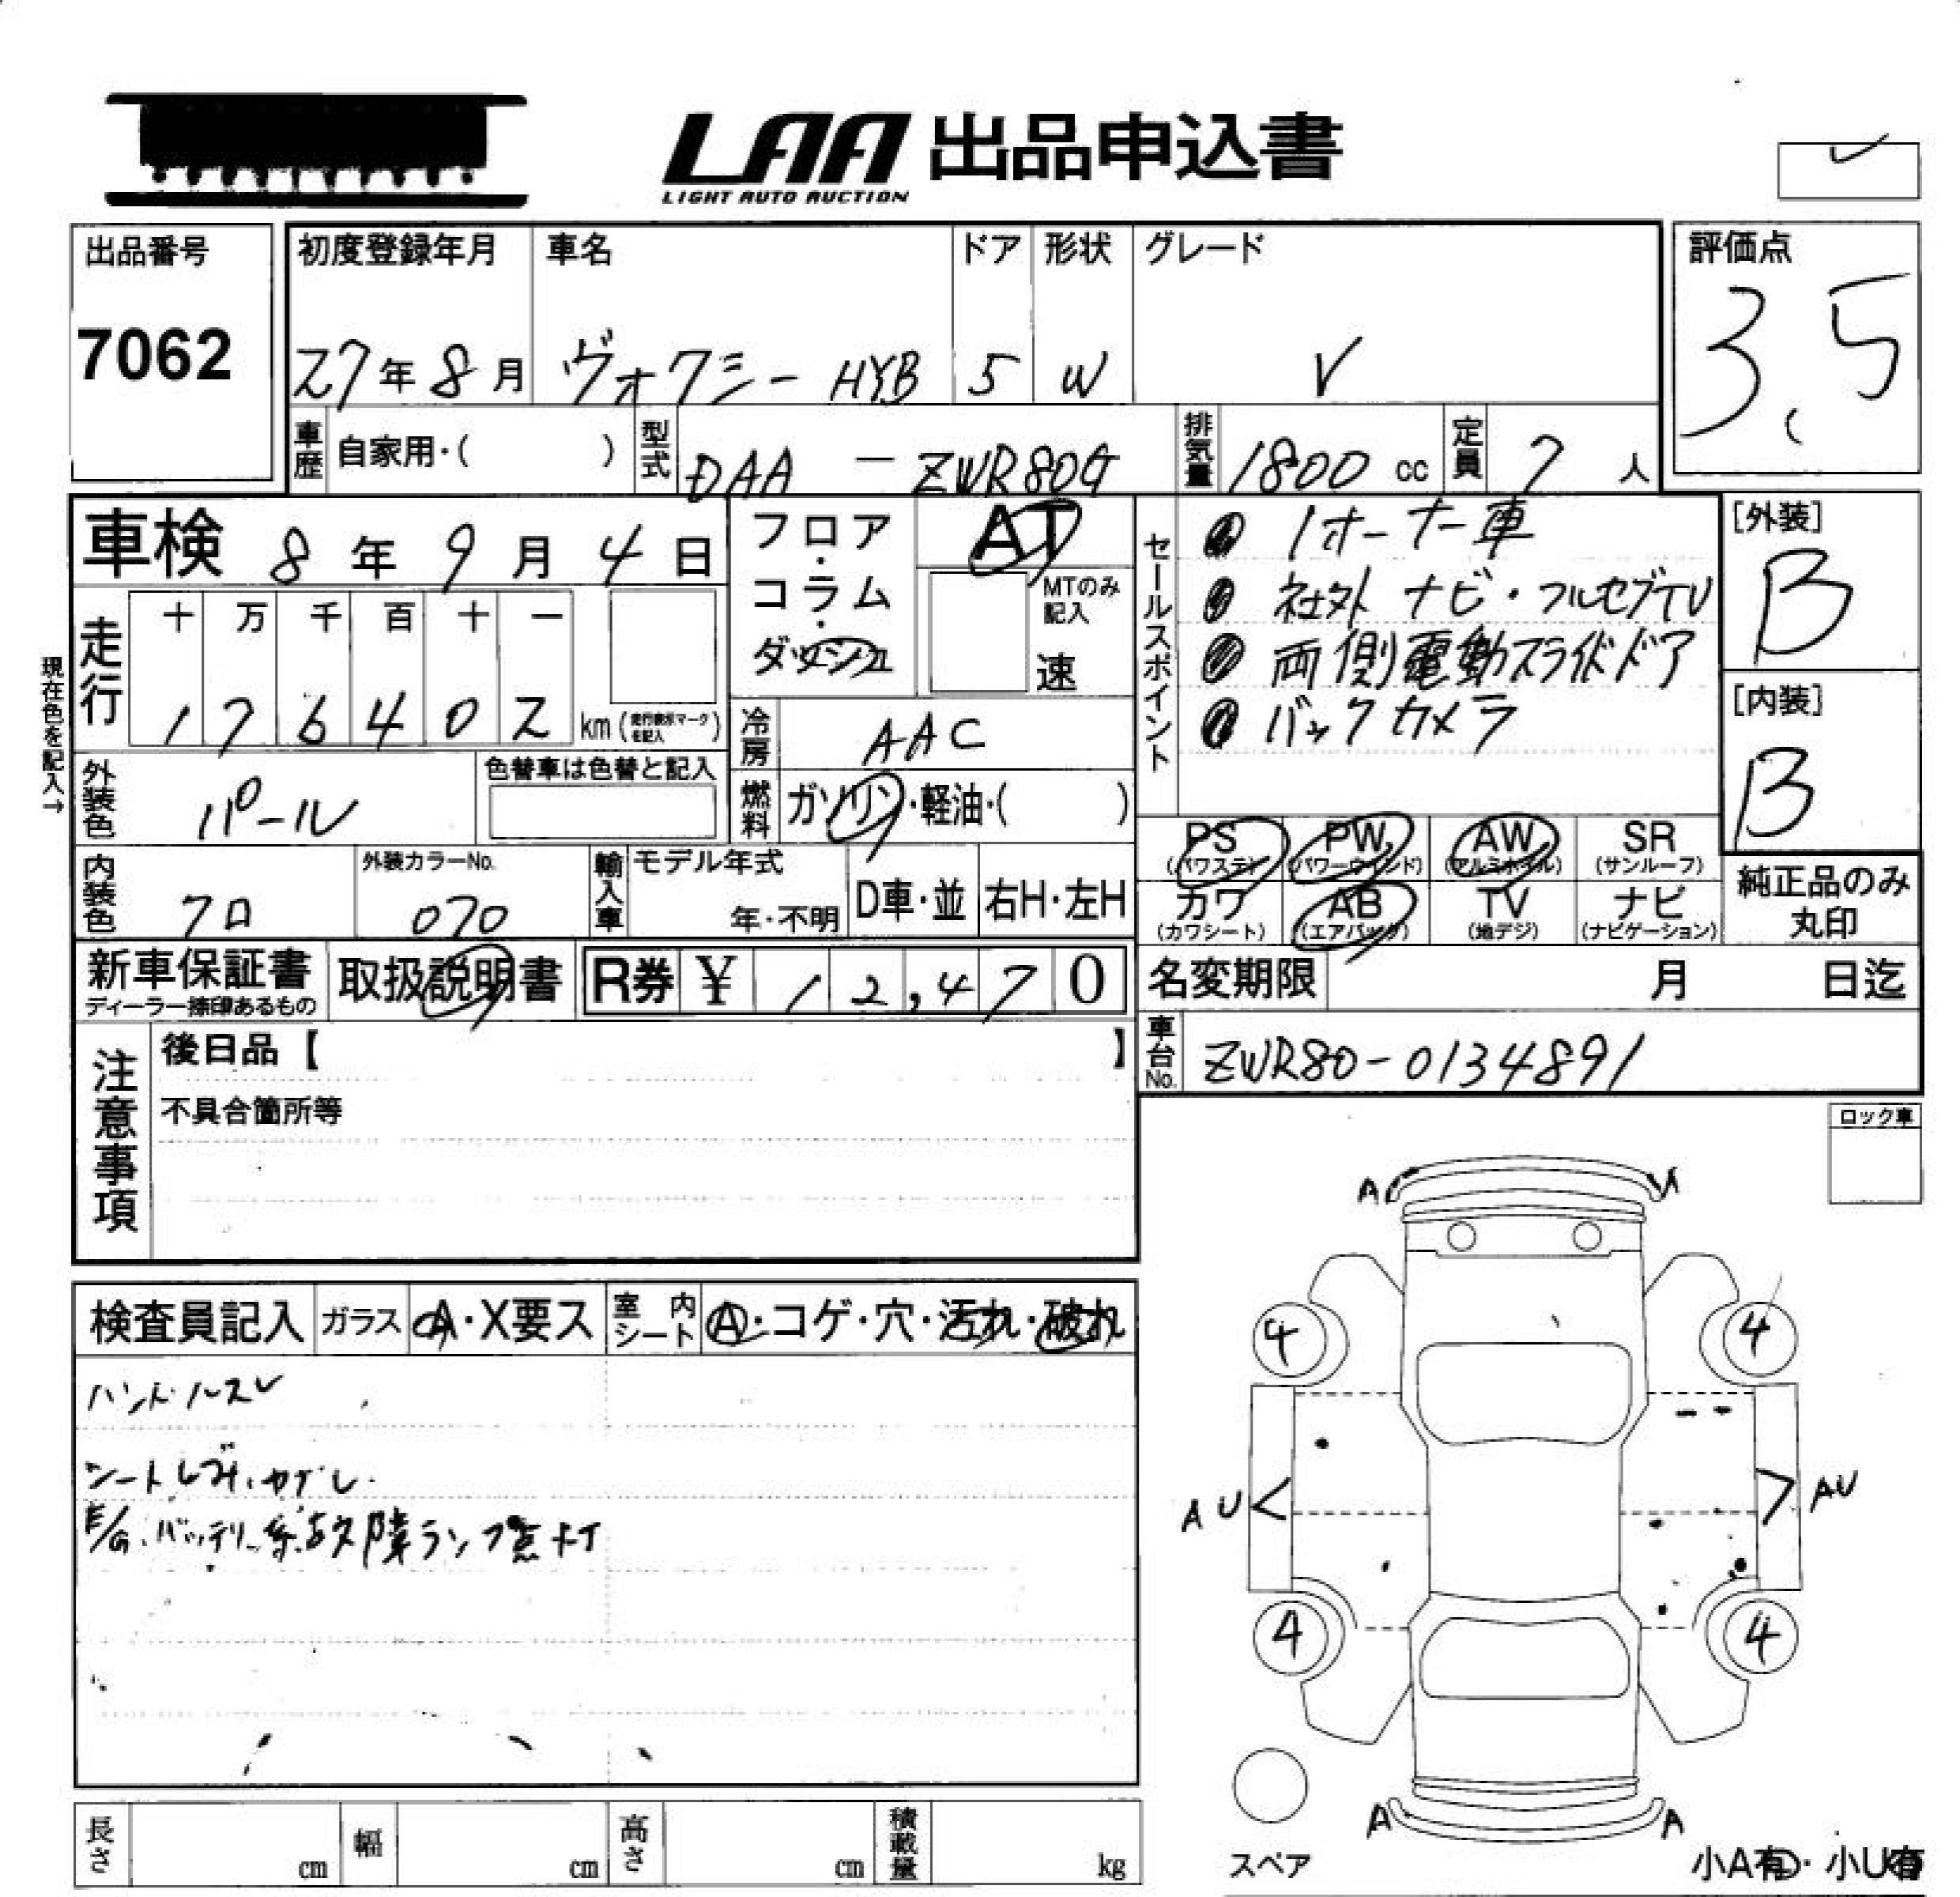 LAA 出品申込書
LIGHT AUTO AUCTION
出品番号
7062
初度登録年月
27年8月
車名
ヴォクシー HYB
ドア
5
形状
W
グレード
V
評価点
3.5
車歴 自家用・( )
型式 DAA - ZWR80G
排気量 1800 cc
定員 7 人
車検 8年9月4日
フロア・コラム・ダッシュ
AT
MTのみ記入
速
セールスポイント
1オーナー車
社外 ナビ・フルセグTV
両側電動スライドドア
バックカメラ
[外装]
B
[内装]
B
現在色を記入→
走行
十 万 千 百 十 一
1 7 6 4 0 2 km (走行表示マークを記入)
冷房 AAC
外装色 パール
色替車は色替と記入
燃料 ガソリン・軽油・( )
PS (パワステ)
PW (パワーウィンド)
AW (アルミホイル)
SR (サンルーフ)
カワ (カワシート)
AB (エアバック)
TV (地デジ)
ナビ (ナビゲーション)
純正品のみ丸印
内装色 クロ
外装カラーNo.
070
輸入車
モデル年式
年・不明
D車・並
右H・左H
新車保証書
ディーラー捺印あるもの
取扱説明書
R券 ¥ 12,470
名変期限 月 日迄
車台No. ZWR80-0134891
注意事項
後日品【 】
不具合箇所等
ロック車
検査員記入
ガラス A・X要ス
室内シート A・コゲ・穴・汚れ・破れ
ハンドルスレ
E/G.バッテリー系故障ランプ点灯
A
A
4
4
AU
AU
4
4
A
A
スペア
小A有・小U有
長さ cm
幅 cm
高さ cm
積載量 kg